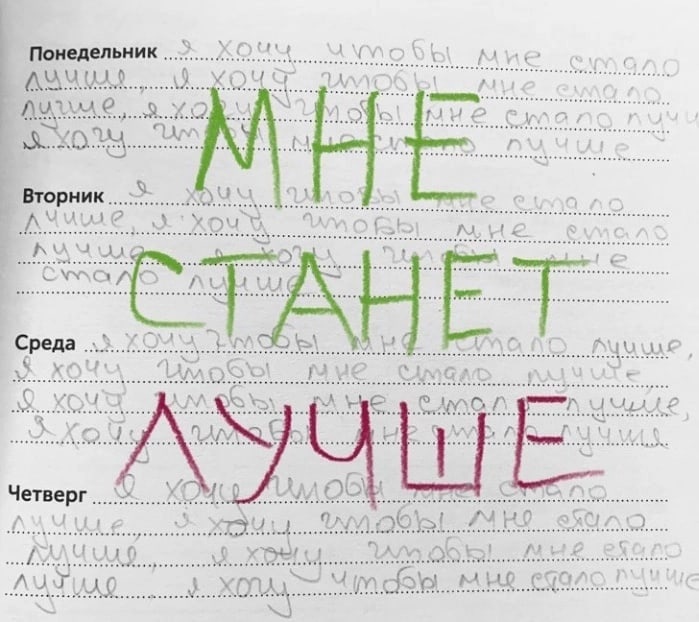 Понедельник я хочу чтобы мне стало
лучше, я хочу чтобы мне стало
лучше, я хочу чтобы мне стало лучш
я хочу чтобы мне стало лучше
МНЕ
Вторник я хочу чтобы мне стало
лучше, я хочу чтобы мне стало
лучше я хочу чтобы мне
стало лучше
СТАНЕТ
Среда я хочу чтобы мне стало лучше,
я хочу чтобы мне стало лучше,
я хочу чтобы мне стало лучше,
я хочу чтобы мне стало лучше
ЛУЧШЕ
Четверг я хочу чтобы мне стало
лучше, я хочу чтобы мне стало
лучше, я хочу чтобы мне стало
лучше, я хочу чтобы мне стало лучше